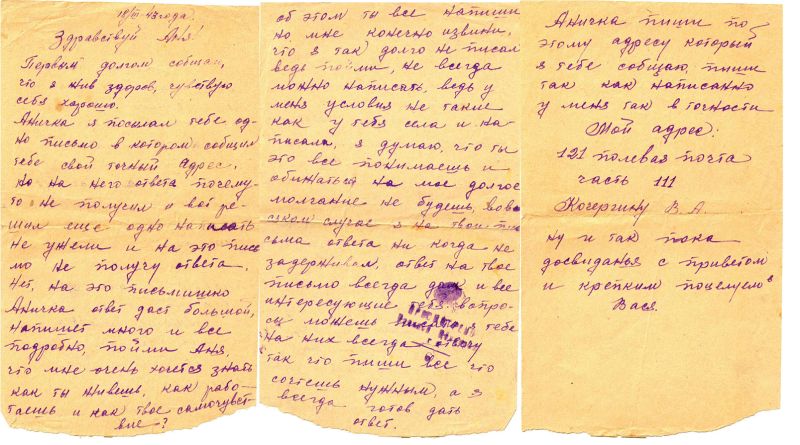 18/III 43 года.
Здравствуй Аня!
Первым долгом сообщаю,
что я жив здоров, чувствую
себя хорошо.
Аничка я посылал тебе од-
но письмо в котором сообщил
тебе свой точный адрес,
но на него ответа почему-
то не получил и вот ре-
шил еще одно написать
не ужели и на это пись
мо не получу ответа.
Нет, на это письмишко
Аничка ответ даст большой,
напишет много и все
подробно, пойми Аня,
что мне очень хочется знать
как ты живешь, как рабо-
таешь и как твое самочувст-
вие-?
об этом ты все напиши
но мне конечно извини,
что я так долго не писал
ведь пойми, не всегда
можно написать, ведь у
меня условия не такие
как у тебя села и на-
писала, я думаю, что ты
это все понимаешь и
обижаться на мое долгое
молчание не будешь, во вся
ском случае я на твои пи
сьма ответа ни когда не
задерживал, ответ на твое
письмо всегда дам и все
интересующие тебя вопро-
сы можешь я тебе
на них всегда отвечу
так что пиши все что
сочтешь нужным, а я
всегда готов дать
ответ.
Аничка пиши по
этому адресу который
я тебе сообщаю, пиши
так как написанно
у меня так в точности
Мой адрес:
121 полевая почта
часть 111
Кочергину В. А.
ну и так пока
досвиданья с приветом
и крепким поцелуем
Вася.